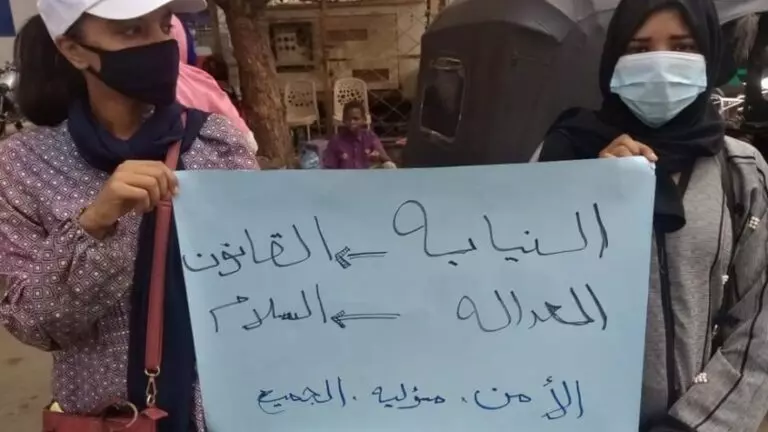 النيابه ← القانون
العداله ← السلام
الأمن. مسؤليه. الجميع